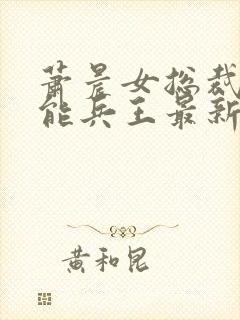 萧晨女总裁
能兵王最新
黄和昆